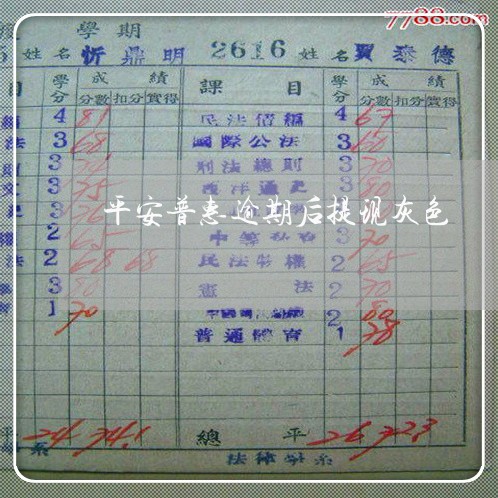 7788.com
學期
姓名 忻鼎明 2616 姓名 賈泰德
目 學分 成績 課目 學分 成績
分數 扣分 實得 分數 扣分 實得
4 81 民法債編 4 67
法 3 68 國際公法 3 60
3 刑法總則 3 70
3 75 西洋通史 3 80
3 76 3
平安普惠逾期后提现灰色
2 65 3 70
法 2 68 68 民法物權 2 65
3 80 憲法 2 70
1 70 2 80
普通體育 1 78
平 24 74.1 總平 26 72.3
系 法律學系